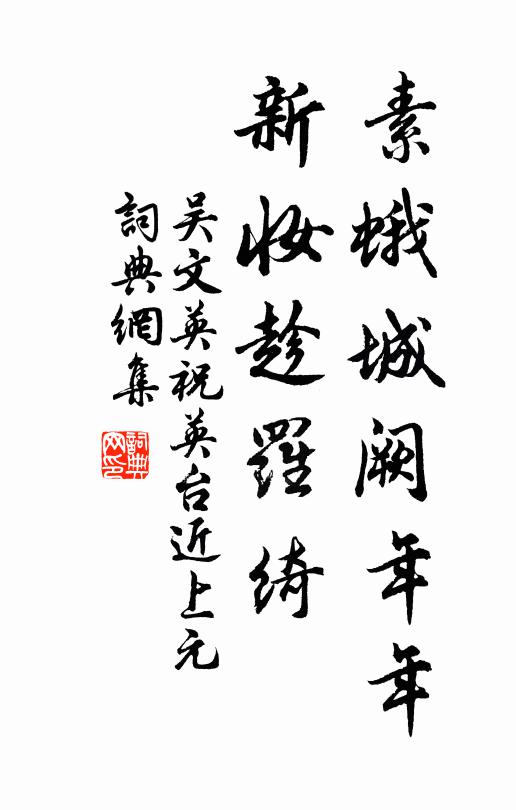 素蛾城阙年年
新妆趁羅绮
吴文英祝英台近上元
詞典網集
詞典网印